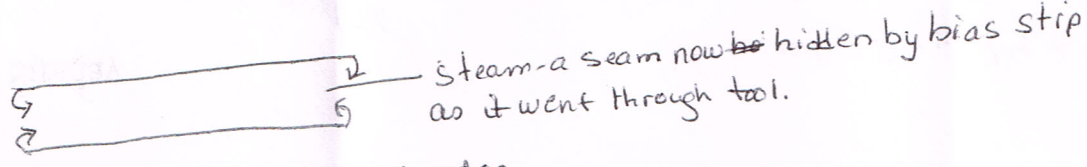 Steam-a Seam now hidden by bias stip
as it went through tool.